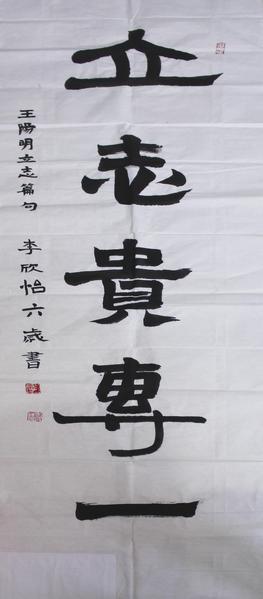 立志貴專一
王陽明立志篇句 李欣怡六歲書